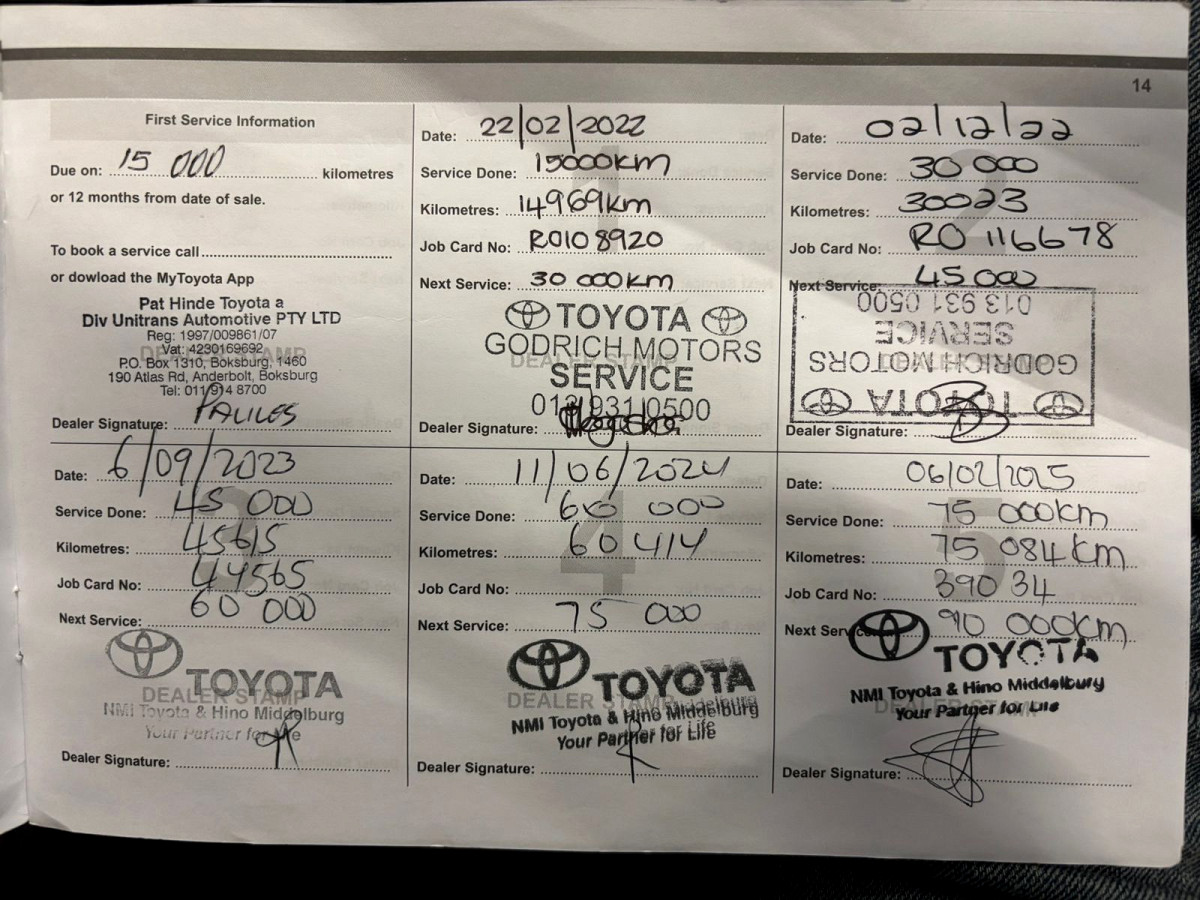 14
First Service Information
Due on: 15 000 kilometres
or 12 months from date of sale.
To book a service call
or dowload the MyToyota App
Pat Hinde Toyota a
Div Unitrans Automotive PTY LTD
Reg: 1997/009861/07
Vat: 4230169692
P.O. Box 1310, Boksburg, 1460
190 Atlas Rd, Anderbolt, Boksburg
Tel: 011 914 8700
Dealer Signature:
Date: 22/02/2022
Service Done: 15000km
Kilometres: 14969km
Job Card No: RO108920
Next Service: 30 000km
TOYOTA
GODRICH MOTORS
DEALER STAMP
SERVICE
013 931 0500
Dealer Signature:
2
Date: 02/12/22
Service Done: 30 000
Kilometres: 30023
Job Card No: RO 116678
Next Service: 45 000
013 931 0500
SERVICE
GODRICH MOTORS
TOYOTA
Dealer Signature:
Date: 6/09/2023
Service Done: 45 000
Kilometres: 45615
Job Card No: 44565
Next Service: 60 000
TOYOTA
DEALER STAMP
NMI Toyota & Hino Middelburg
Your Partner for Life
Dealer Signature:
4
Date: 11/06/2024
Service Done: 60 000
Kilometres: 60414
Job Card No:
Next Service: 75 000
TOYOTA
DEALER STAMP
NMI Toyota & Hino Middelburg
Your Partner for Life
Dealer Signature:
5
Date: 06/02/2025
Service Done: 75 000km
Kilometres: 75 084km
Job Card No: 390 34
Next Service: 90 000km
TOYOTA
NMI Toyota & Hino Middelburg
Your Partner for Life
Dealer Signature: